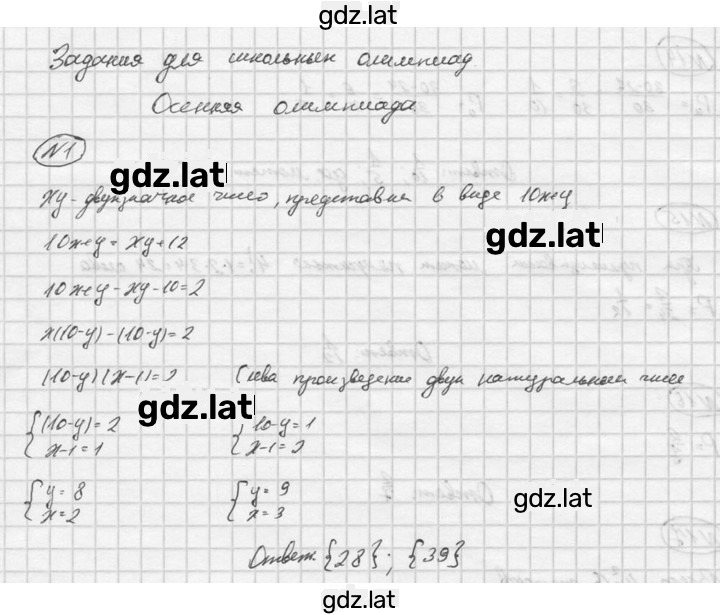 gdz.lat
Задания для школьных олимпиад
Осенняя олимпиада
№1
gdz.lat
xy - двузначное число, представим в виде 10x+y
gdz.lat
10x+y = xy+12
10x+y-xy-10=2
x(10-y)-(10-y)=2
(10-y)(x-1)=2 Слева произведение двух натуральных чисел
gdz.lat
{(10-y)=2 {10-y=1
x-1=1 x-1=2
{y=8 {y=9
x=2 x=3
gdz.lat
Ответ: {28}; {39}
gdz.lat